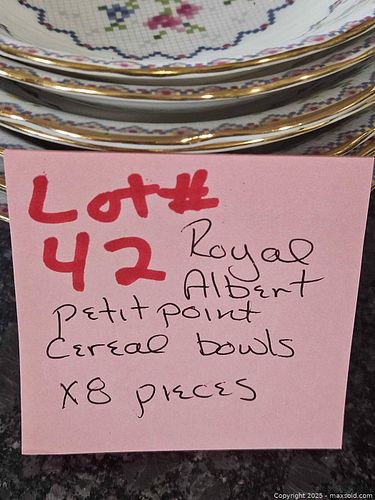 Lot#
42 Royal
Albert
petit point
cereal bowls
x8 pieces
Copyright 2025 - maxsold.com